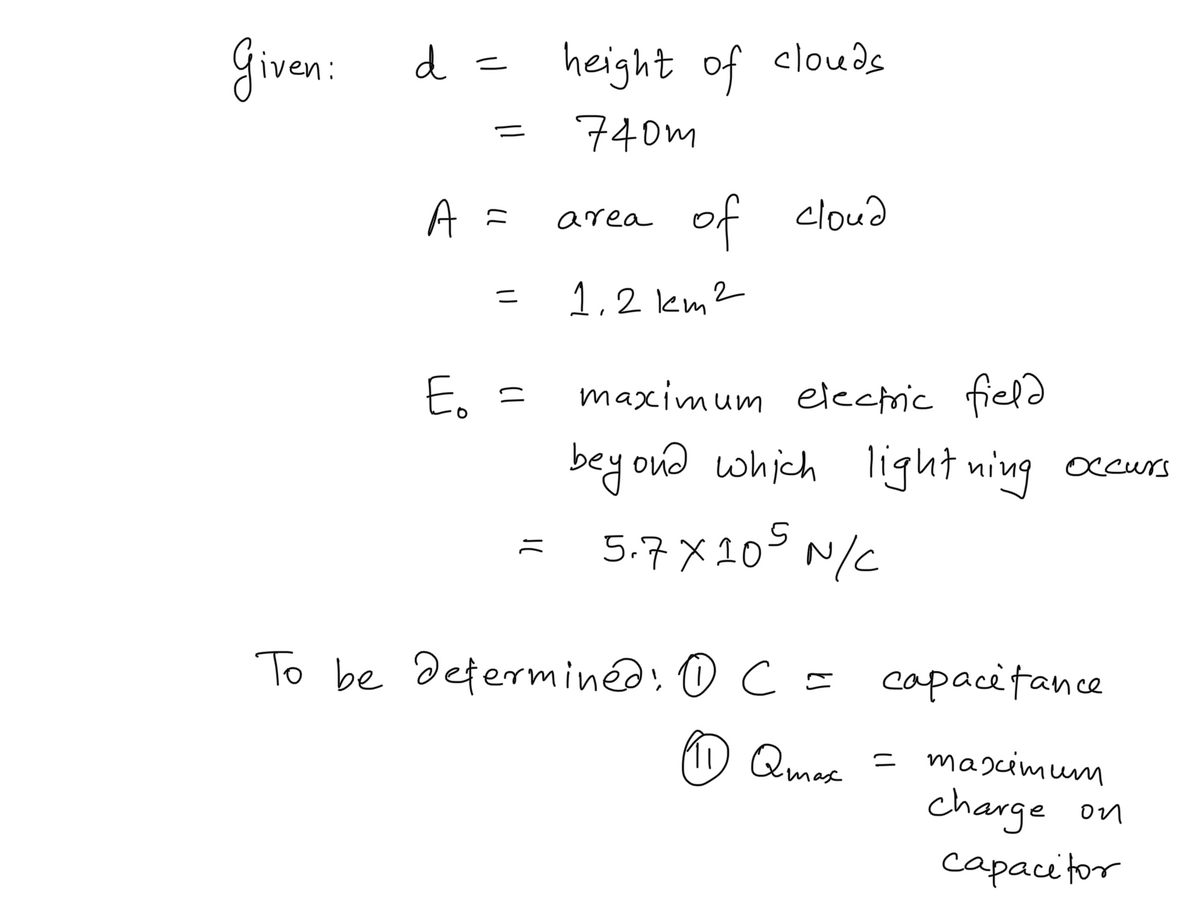 Given: d = height of clouds
= 740m
A = area of cloud
= 1.2 km²
E₀ = maximum electric field
beyond which lightning occurs
= 5.7 × 10⁵ N/C
To be determined: ① C = capacitance
⑪ Qmax = maximum
charge on
capacitor